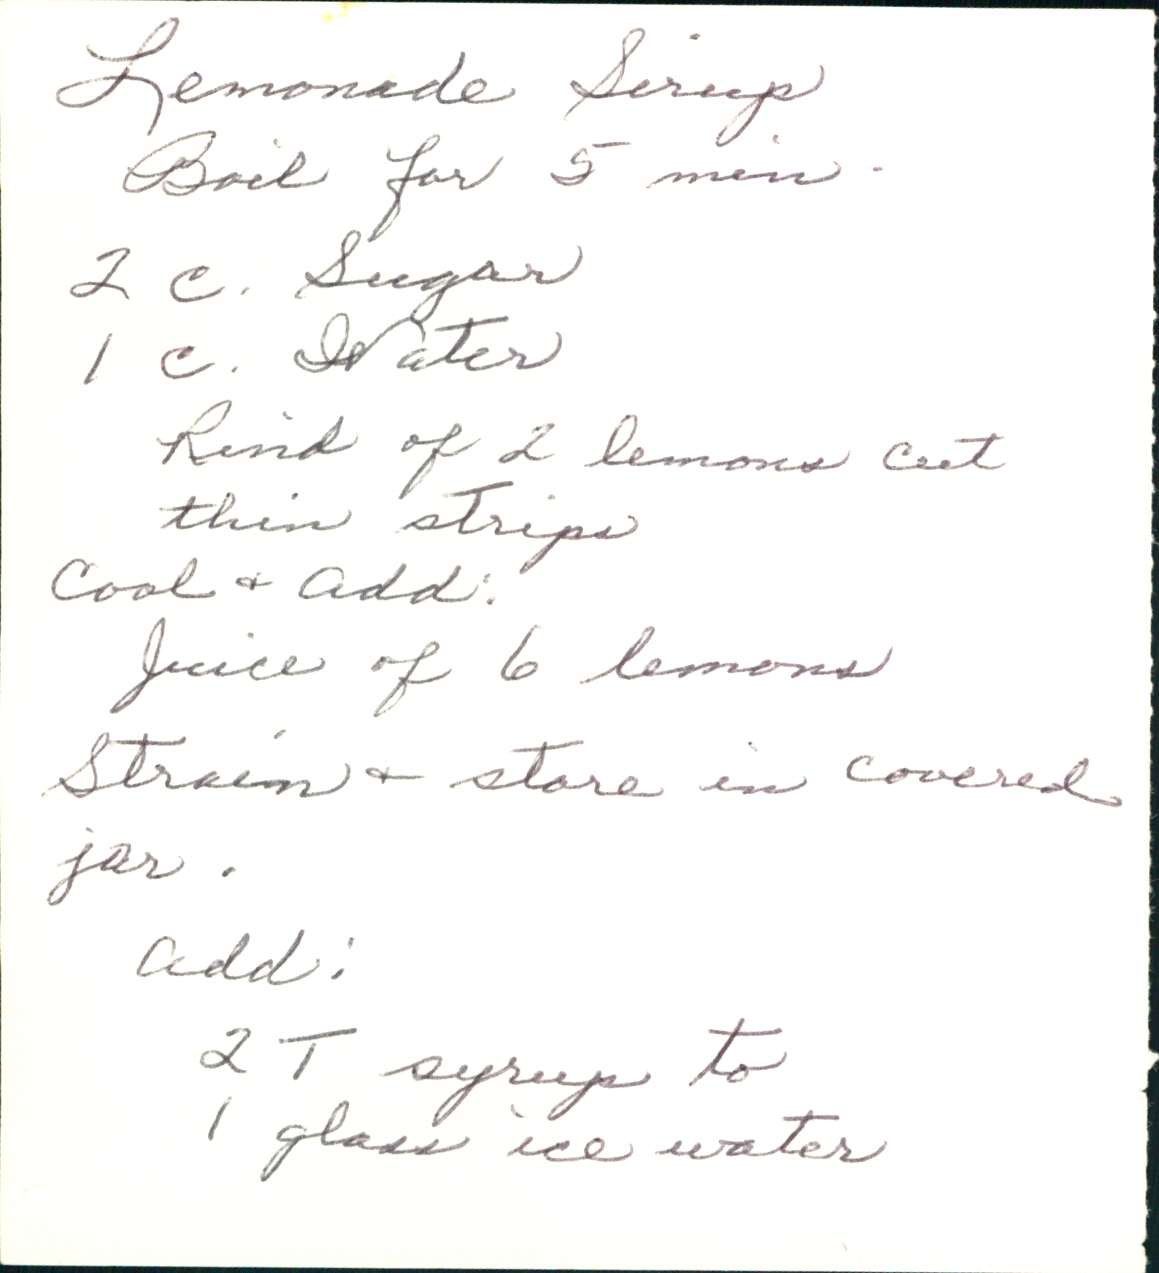 Lemonade Sirup
Boil for 5 min.
2 c. Sugar
1 c. Water
Rind of 2 lemons cut
thin strips
Cool + add:
Juice of 6 lemons
Strain + store in covered
jar.
add:
2 T syrup to
1 glass ice water